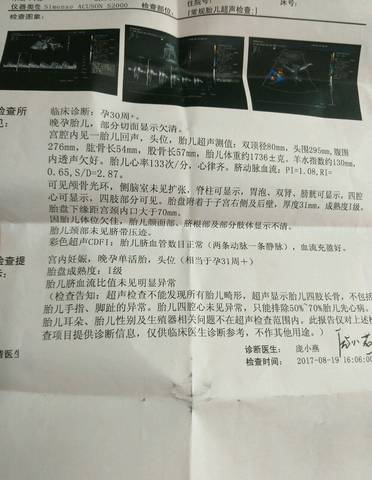 仪器类型 Simenso ACUSON S2000 检查部位:
住院号: 床号:
[常规胎儿超声检查:]
检查图象:
检查所见:
临床诊断:孕30周+。
晚孕胎儿,部分切面显示欠清。
宫腔内见一胎儿回声,头位,胎儿超声测值:双顶径80mm,头围295mm,腹围
276mm,肱骨长54mm,股骨长57mm,胎儿体重约1736±克。羊水指数约130mm,
内透声欠好。胎儿心率133次/分,心律齐。脐动脉血流:PI=1.08,RI=
0.65,S/D=2.87。
可见颅骨光环,侧脑室未见扩张,脊柱可显示,胃泡、双肾、膀胱可显示,四腔
心可显示,四肢部分可见。胎盘附着于子宫右侧及后壁,厚度31mm,成熟度I级。
胎盘下缘距宫颈内口大于70mm。
因胎儿体位欠佳,胎儿颜面部、脐根部及部分肢体显示不清。
胎儿颈部未见脐带压迹。
彩色超声CDFI:胎儿脐血管数目正常(两条动脉一条静脉),血流充盈好。
检查提示:
宫内妊娠,晚孕单活胎,头位(相当于孕31周+)
胎盘成熟度:I级
胎儿脐血流比值未见明显异常
(检查告知:超声检查不能发现所有胎儿畸形,超声显示胎儿四肢长骨,不包括
胎儿手指、脚趾的异常。胎儿四腔心未见异常,只能排除50%~70%胎儿先心病。
胎儿耳朵、胎儿性别及生殖器相关问题不在超声检查范围内。此报告仅对上述检
查项目提供诊断信息,仅供临床医生诊断参考,不作其他用途。)
诊断医生: 庞小燕
检查时间: 2017-08-19 16:06:00